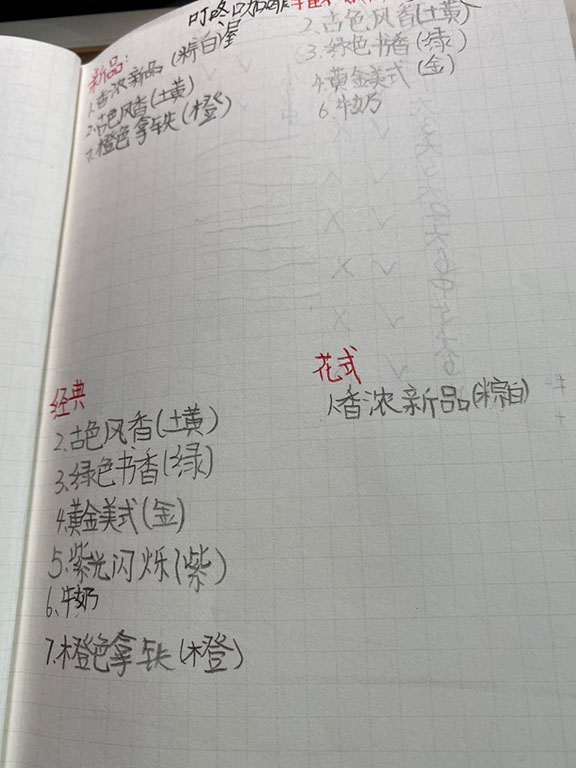 叮咚咖啡屋
新品:
1.香浓新品(棕白)
2.古色风香(土黄)
7.橙色拿铁(橙)
2.古色风香(土黄)
3.绿色书香(绿)
4.黄金美式(金)
6.牛奶
经典
2.古色风香(土黄)
3.绿色书香(绿)
4.黄金美式(金)
5.紫光闪烁(紫)
6.牛奶
7.橙色拿铁(橙)
花式
1.香浓新品(棕白)